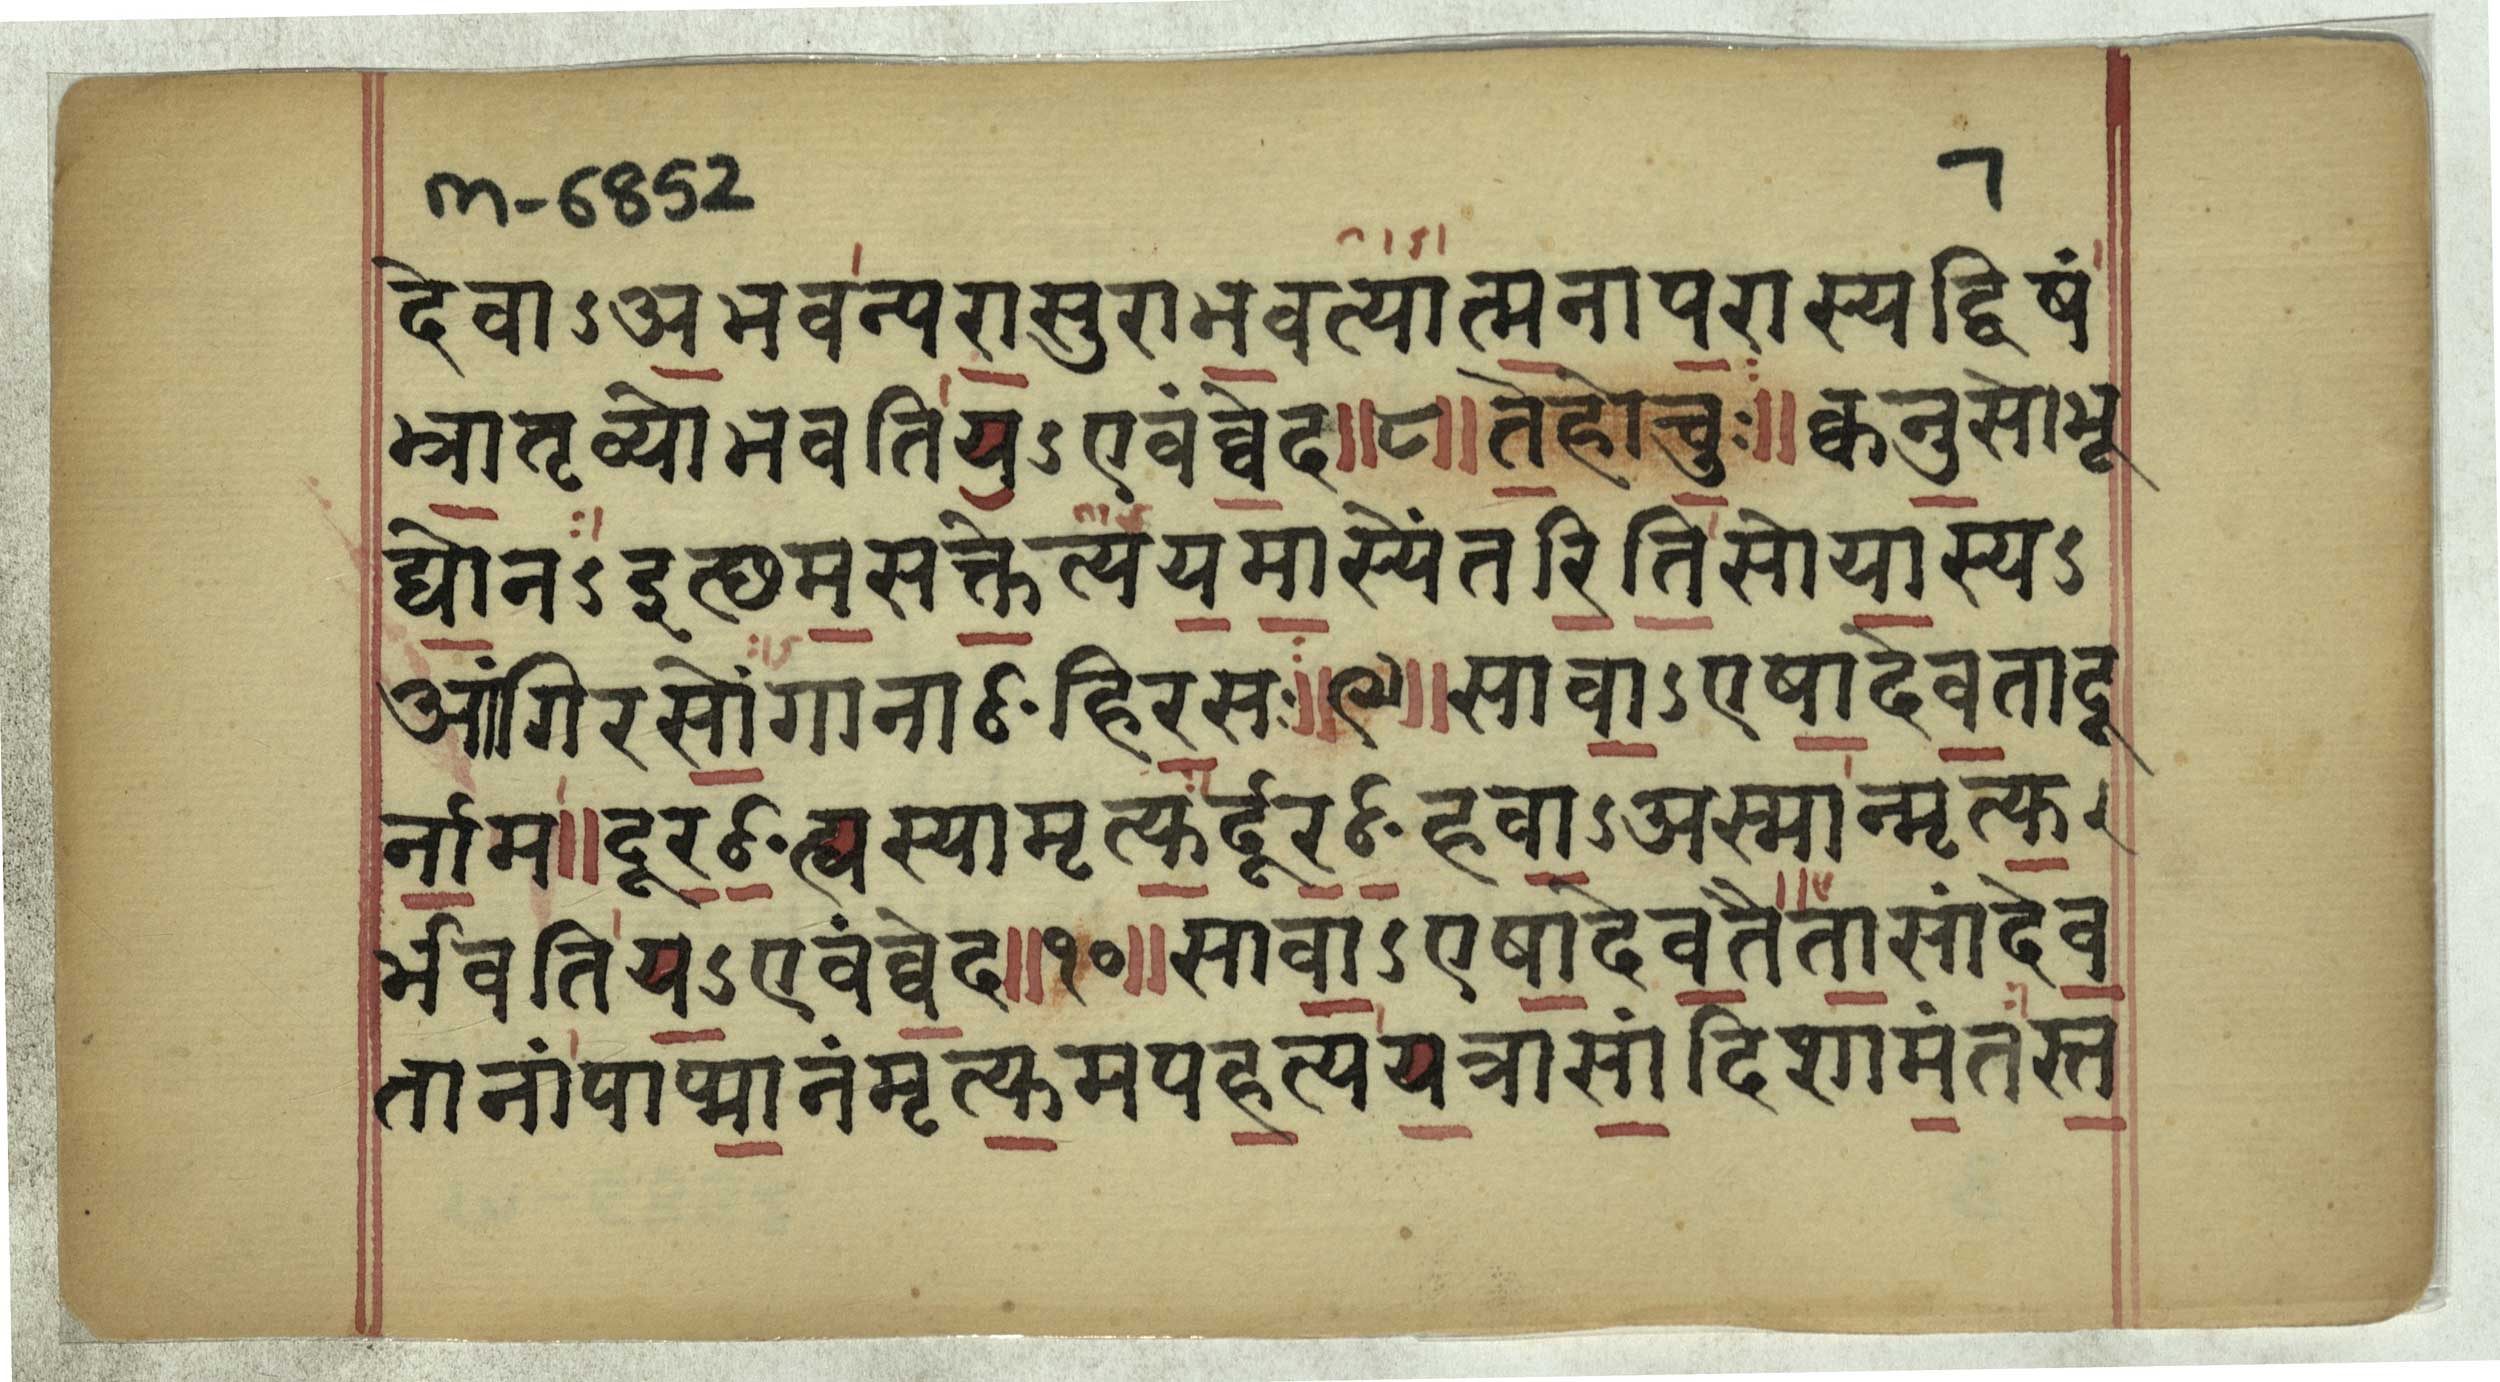 m-6852
7
देवाऽअभवन्परासुराभवत्यात्मनापरास्यद्विषं
भ्रातृव्योभवतियऽएवंव्वेद॥८॥तेहोचुः॥क्वनुसोभू
द्योनऽइत्थमसक्तेत्ययमास्येंतरितिसोयास्यऽ
आंगिरसोंगानाᳪहिरसः॥९॥सावाऽएषादेवतादू
र्नाम॥दूरᳪह्यस्यामृत्युर्दूरᳪहवाऽअस्मान्मृत्यु
र्भवतियऽएवंव्वेद॥१०॥सावाऽएषादेवतैतासांदेव
तानांपाप्मानंमृत्युमपहत्ययत्रासांदिशामंतस्त